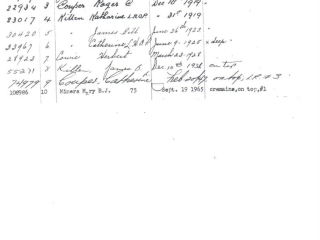 22934 3 Couper Roger C Dec 10th 1919 -
23017 4 Killen Katharine " 31st 1919
30420 5 " James Bell June 26th 1923 -
33967 6 " Catherine June 9. 1925 x deep
38923 7 Currie Herbert March 23 1928
55231 8 Killen, James A. Dec 10th 1938 on top
74979 9 Couper, Catherine on top,
108986 10 Miners H.ry B.J. 75 Sept. 19 1965 cremains, on top,#1